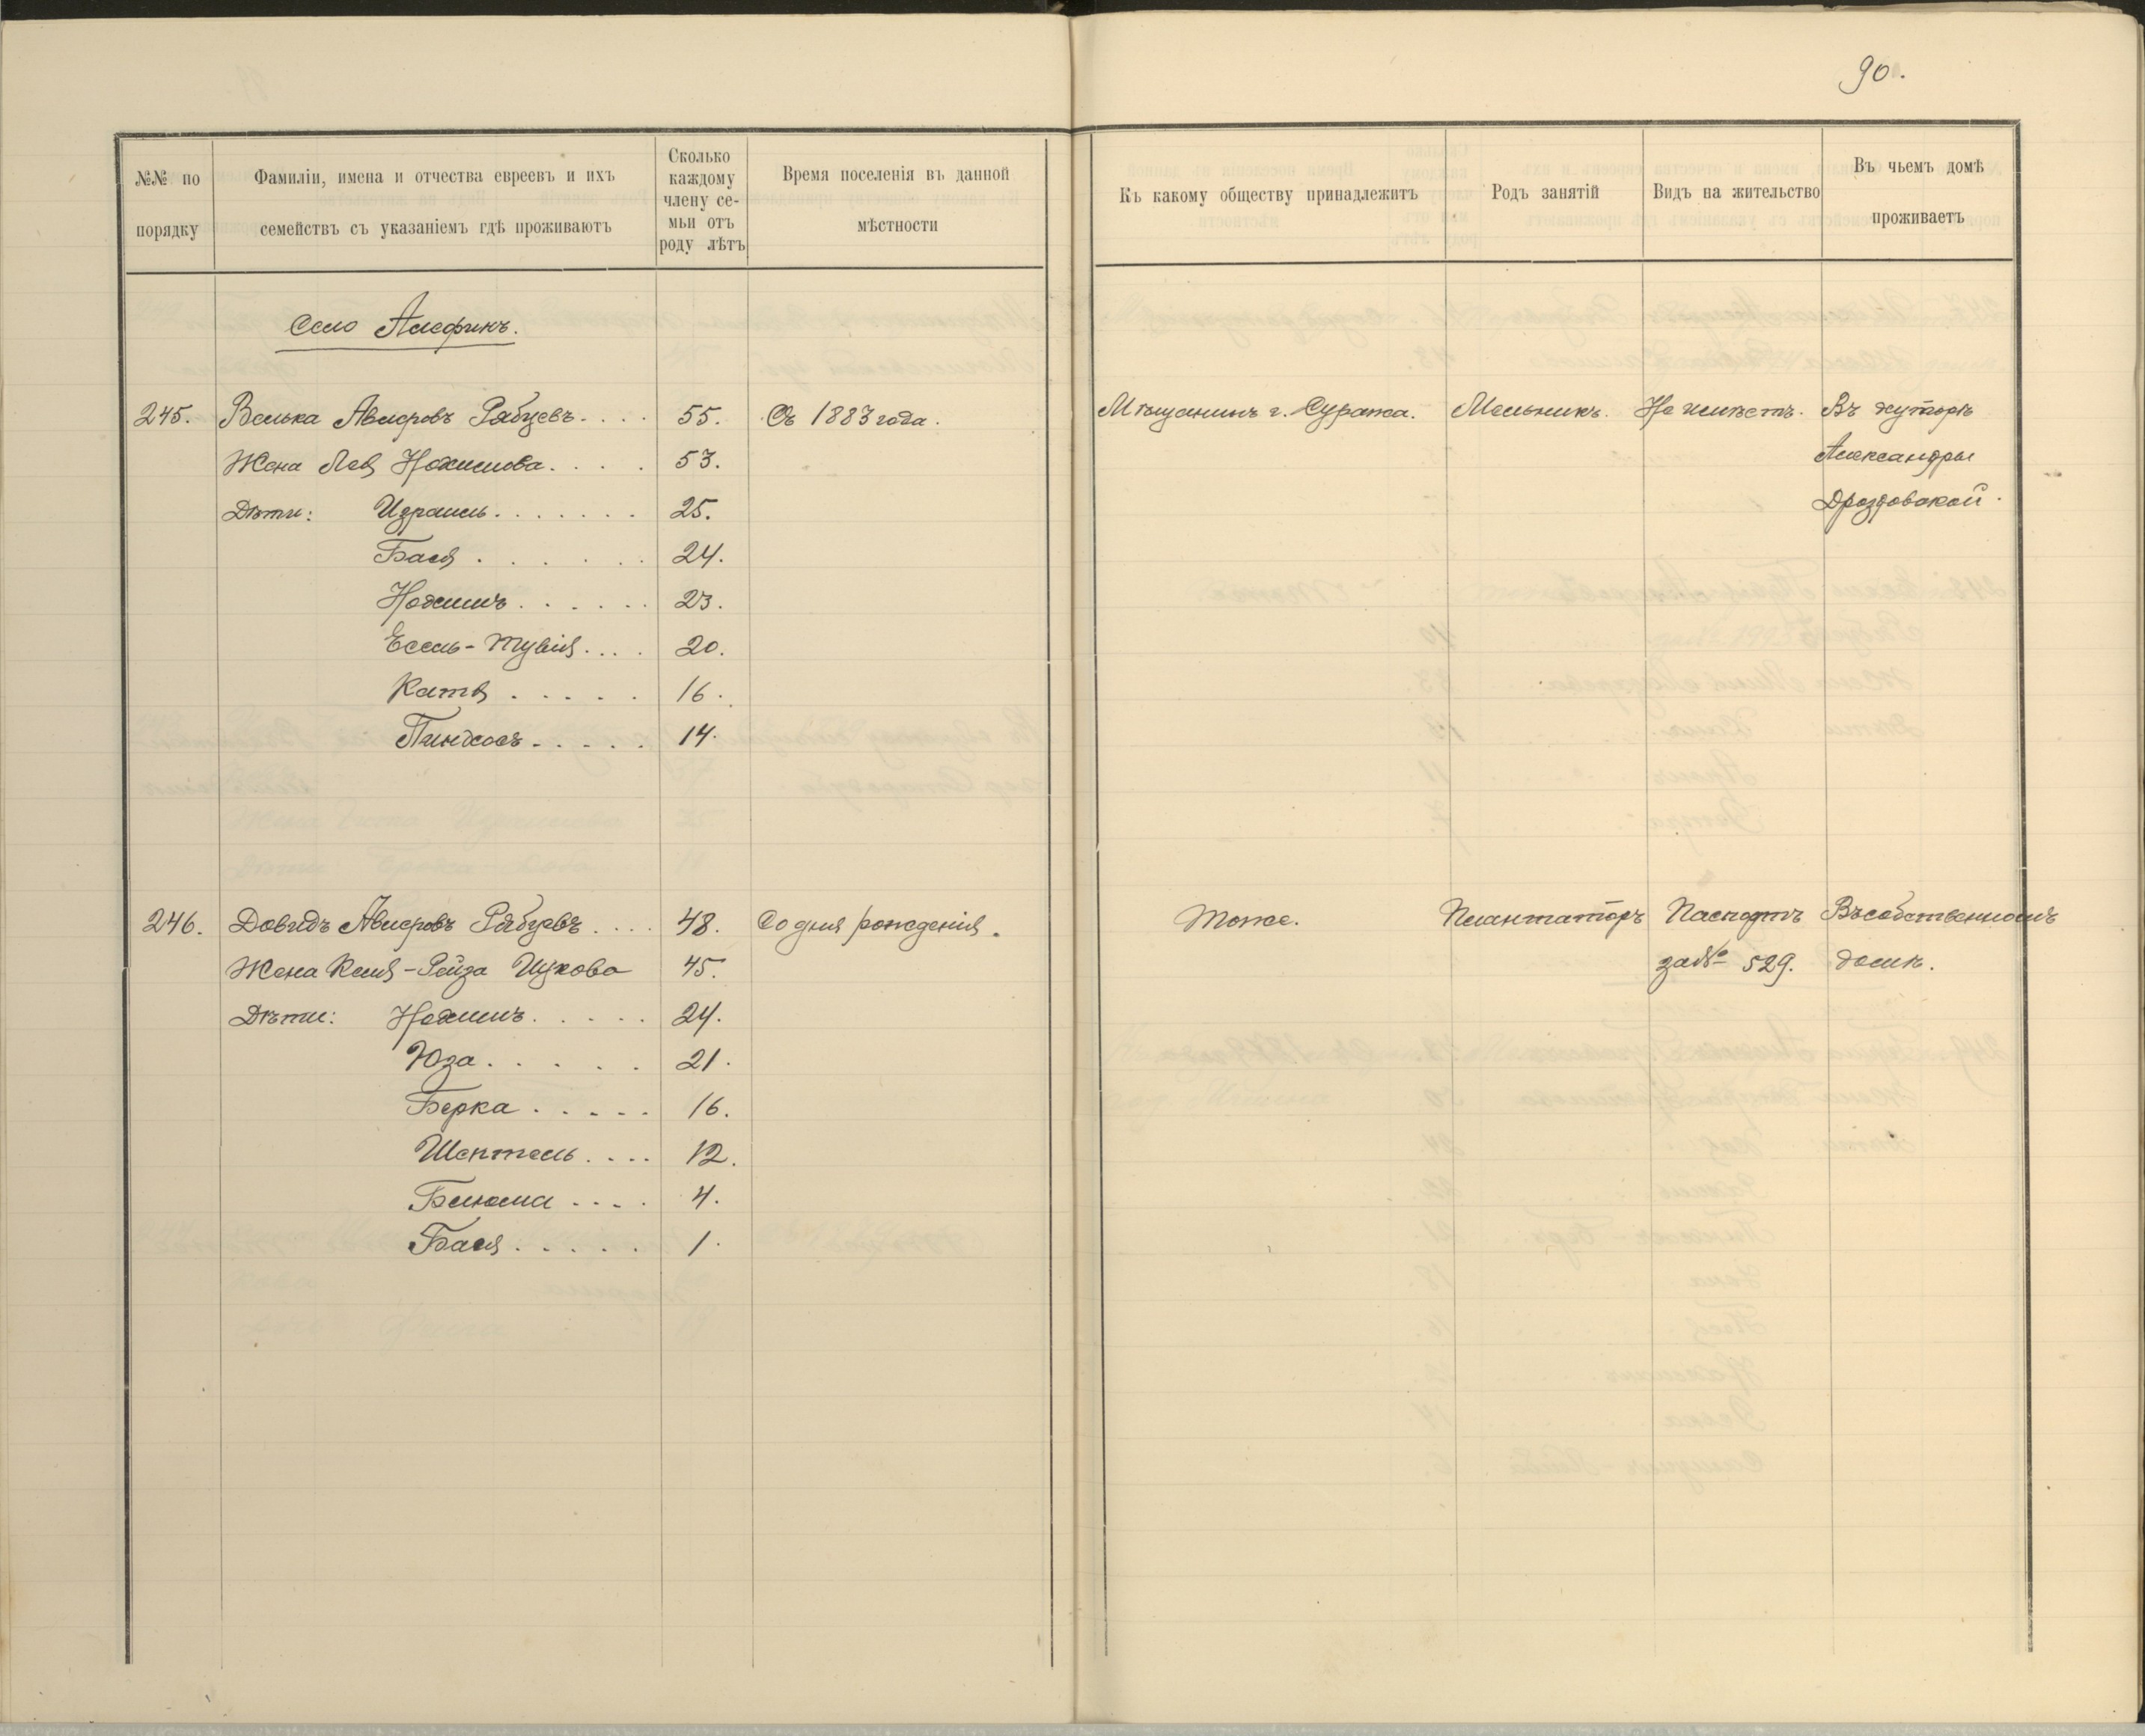 90.
№№ по порядку
Фамиліи, имена и отчества евреевъ и ихъ семействъ съ указаніемъ гдѣ проживаютъ
Сколько каждому члену семьи отъ роду лѣтъ
Время поселенія въ данной мѣстности
Къ какому обществу принадлежитъ
Родъ занятій
Видъ на жительство
Въ чьемъ домѣ проживаетъ
Село
245. Велька Авмеровъ Рябцевъ.... 55. Съ 1883 года. Мѣщанинъ г. Суража. Мельникъ. Не имѣетъ. Въ хуторѣ
Жена Лея Нохимова.... 53. Александры
Дѣти: Израиль....... 25. Дроздовской.
Бася ...... 24.
Нохимъ...... 23.
Есель-Тувія.... 20.
16.
Пинхосъ..... 14.
246. Довидъ Авмеровъ Рябцевъ.... 48. Со дня рожденія. Тоже. Плантаторъ Паспортъ Въ собственномъ
Жена -Рейза Ицкова 45. за № 529. домѣ.
Дѣти: Нохимъ..... 24.
Юза..... 21.
Берка..... 16.
12.
Блюма.... 4.
Бася..... 1.